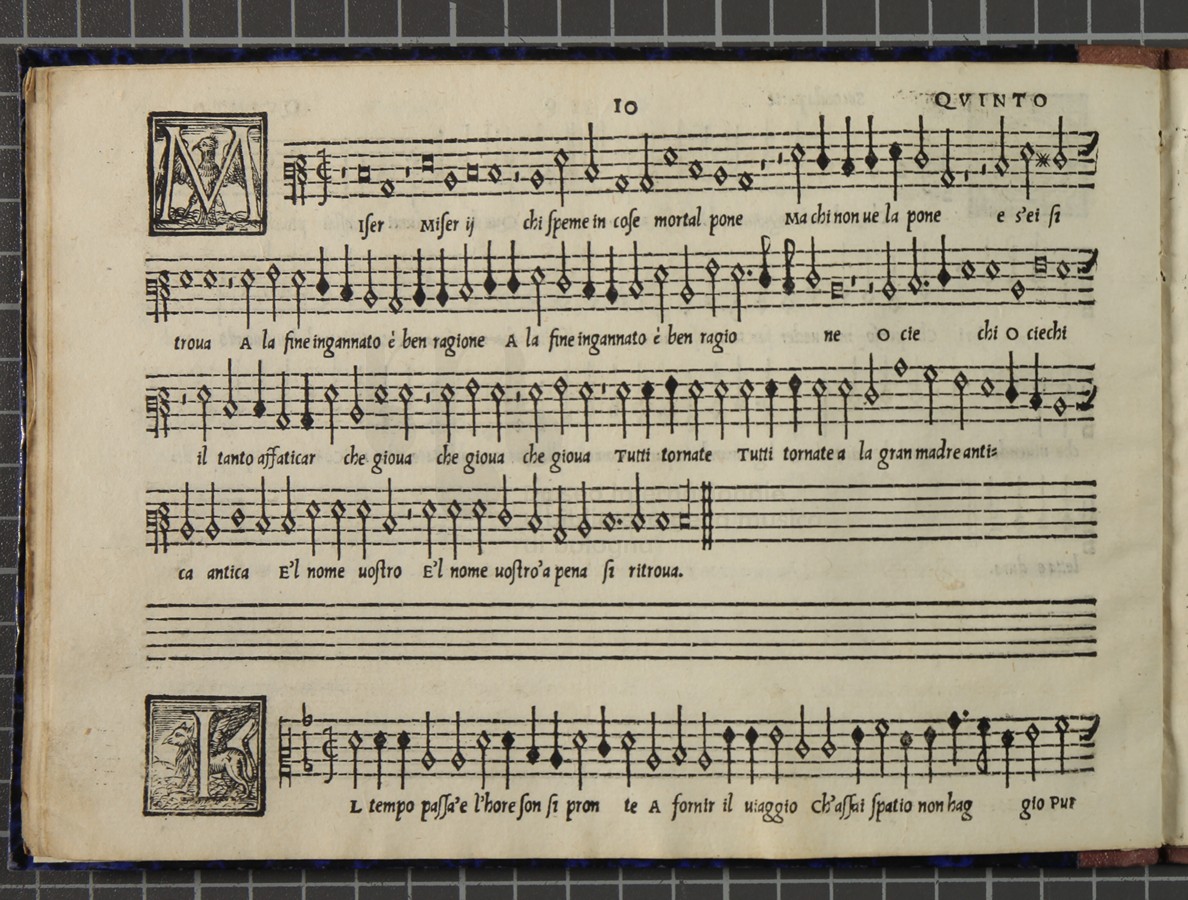 10 QVINTO
MIser Miser ij chi ſpeme in coſe mortal pone Ma chi non ue la pone e s'ei ſi
troua A la fine ingannato è ben ragione A la fine ingannato è ben ragio ne O cie chi O ciechi
il tanto affaticar che gioua che gioua che gioua Tutti tornate Tutti tornate a la gran madre anti
ca antica E'l nome uoſtro E'l nome uoſtro'a pena ſi ritroua.
IL tempo paſſa'e l'hore ſon ſi pron te A fornir il uiaggio Ch'aſſai ſpatio non hag gio Pur